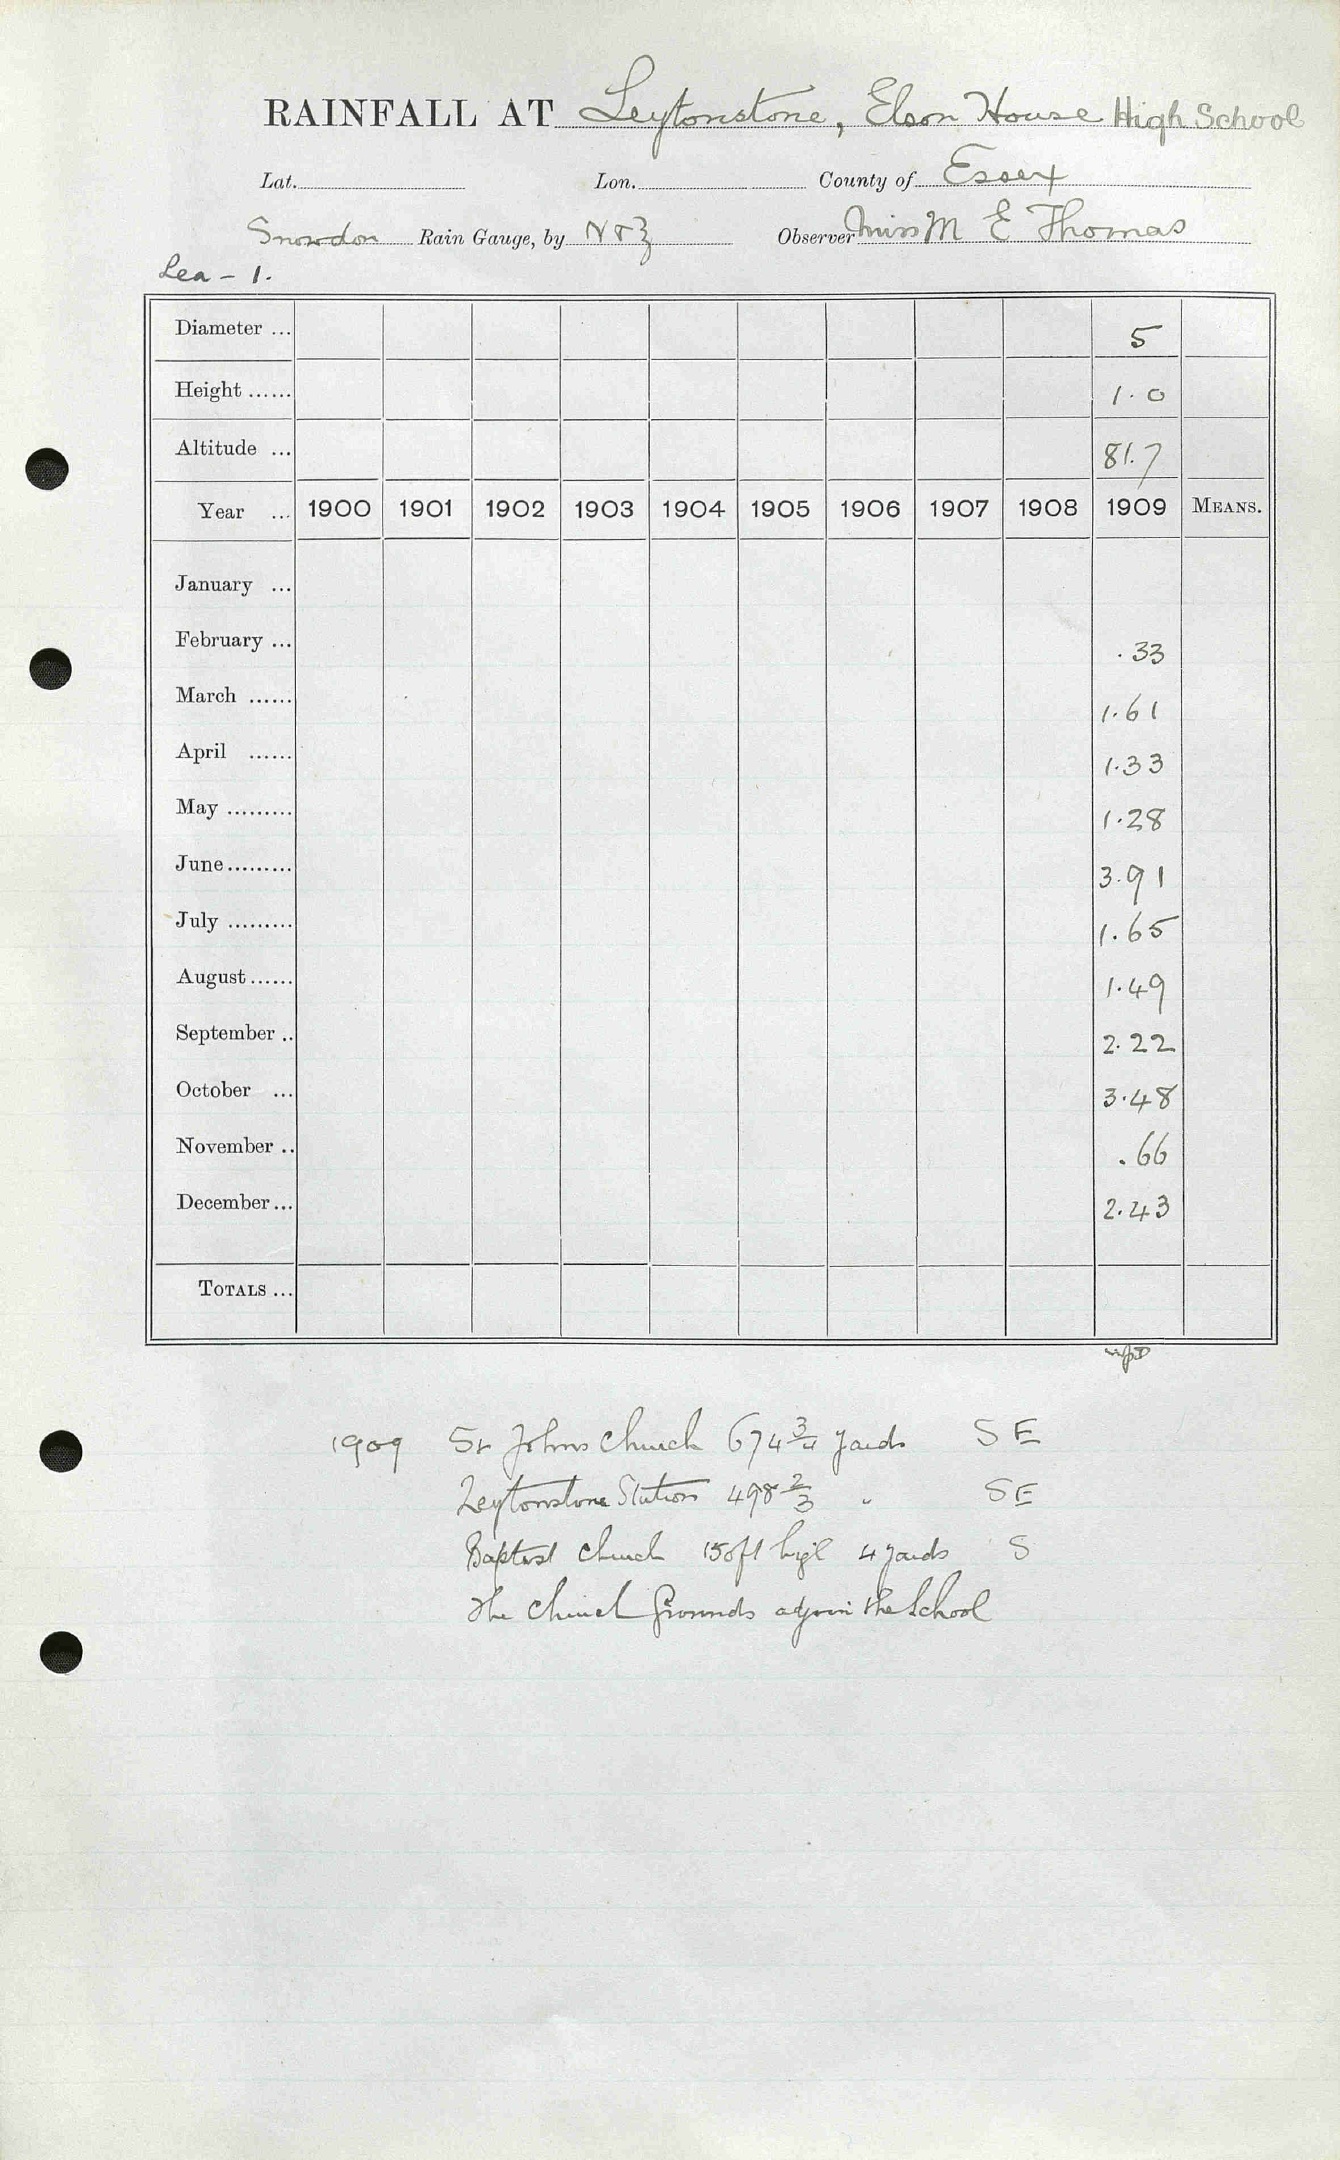 RAINFALL AT Leytonstone, Elson House High School
Lat. Lon. County of Essex
Snowdon Rain Gauge, by N & Z Observer Miss M E Thomas
Lea - 1.
Diameter ... 5
Height ...... 1.0
Altitude ... 81.7
Year ... 1900 1901 1902 1903 1904 1905 1906 1907 1908 1909 MEANS.
January ...
February ... .33
March ...... 1.61
April ...... 1.33
May ......... 1.28
June ......... 3.91
July ......... 1.65
August ...... 1.49
September .. 2.22
October ... 3.48
November .. .66
December ... 2.43
TOTALS ...
1909 St Johns Church 674 3/4 yards S E
Leytonstone Station 498 2/3 " S E
Baptist Church 150ft high 4 yards S
The Church Grounds adjoin the School